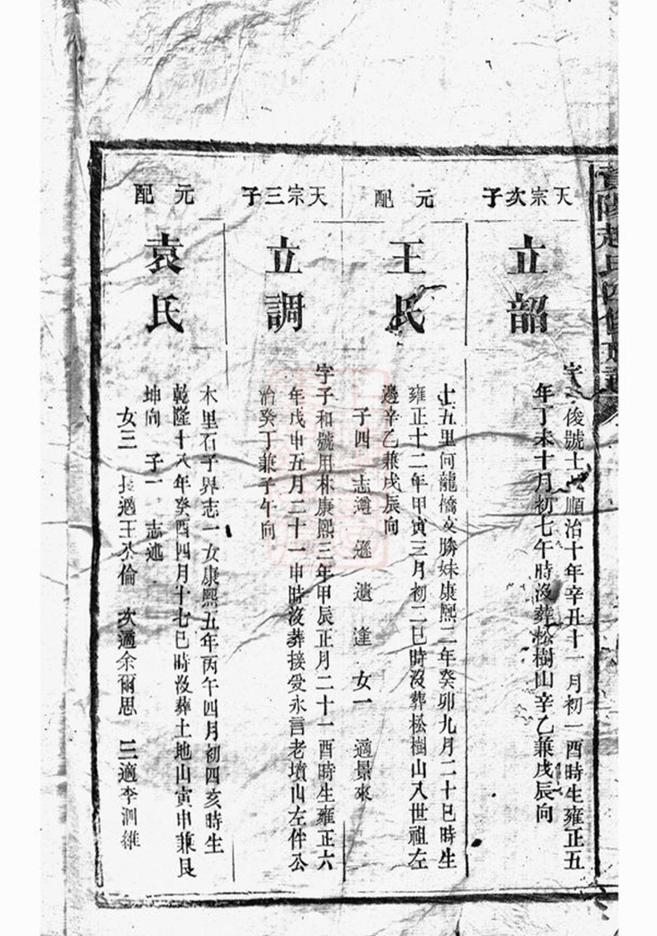 天宗次子
立韶
字俊號士順治十年辛丑十一月初一酉時生雍正五
年丁未十月初七午時沒葬松樹山辛乙兼戌辰向
元配
王氏
七五里何龍橋文勝妹康熙二年癸卯九月二十巳時生
雍正十二年甲寅三月初二巳時沒葬松樹山八世祖左
邊辛乙兼戌辰向
子四 志 遜 遠 達 女一 適景來
天宗三子
立調
字子和號用林康熙三年甲辰正月二十一酉時生雍正六
年戊申五月二十一申時沒葬接受永言老墳山左伴公
治癸丁兼子午向
元配
袁氏
木里石子界志一女康熙五年丙午四月初四亥時生
乾隆十八年癸酉四月十七巳時沒葬土地山寅申兼艮
坤向 子一 志述
女三 長適王丕倫 次適余爾思 三適李泗維